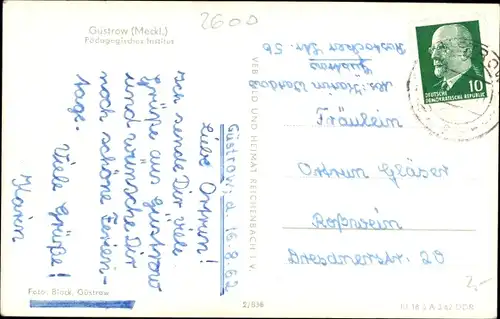 Güstrow (Meckl.)
Pädagogisches Institut
2600
Güstrow, d. 16.8.62
Liebe Ortrun!
Ich sende Dir viele
Grüße aus Güstrow
und wünsche Dir
noch schöne Ferien-
tage.
Viele Grüße!
Karin
Foto: Block, Güstrow
VEB BILD UND HEIMAT REICHENBACH I. V.
S/836
Abs: Karin
Güstrow
Rostocker Str. 56
DEUTSCHE
DEMOKRATISCHE REPUBLIK
10
Fräulein
Ortrun Gläser
Roßwein
Dresdnerstr. 20
2,-